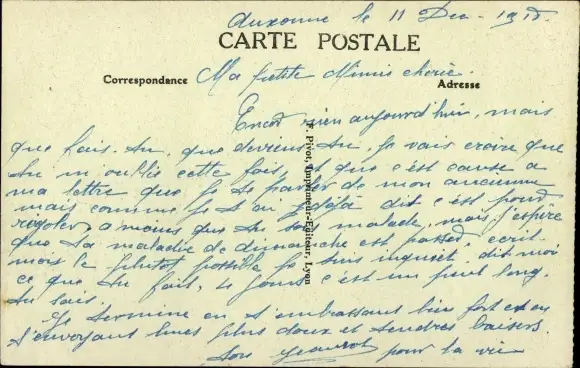 Auxonne le 11 Dec. 1915.
CARTE POSTALE
Correspondance Ma petite Mimis chérie. Adresse
Encor rien aujourd'hui, mais
que fais-tu, que deviens tu, je vais croire que
tu m'oublis cette fois, et que c'est cause a
ma lettre que je te parler de mon ancienne
mais comme je t'ai déjà dit c'est pour
rigoler, a moins que tu sois malade, mais j'espère
que ta maladie de dimanche est passed, ecrit-
mois le plutot possible je suis inquiet, dit moi
ce que tu fait, 4 jours c'est un peut long,
tu sais.
Je termine en t'embrassant bien fort et en
t'envoyant mes plus doux et tendres baisers.
Ton pour la vie
F. Pivot, Imprimeur-Editeur, Lyon